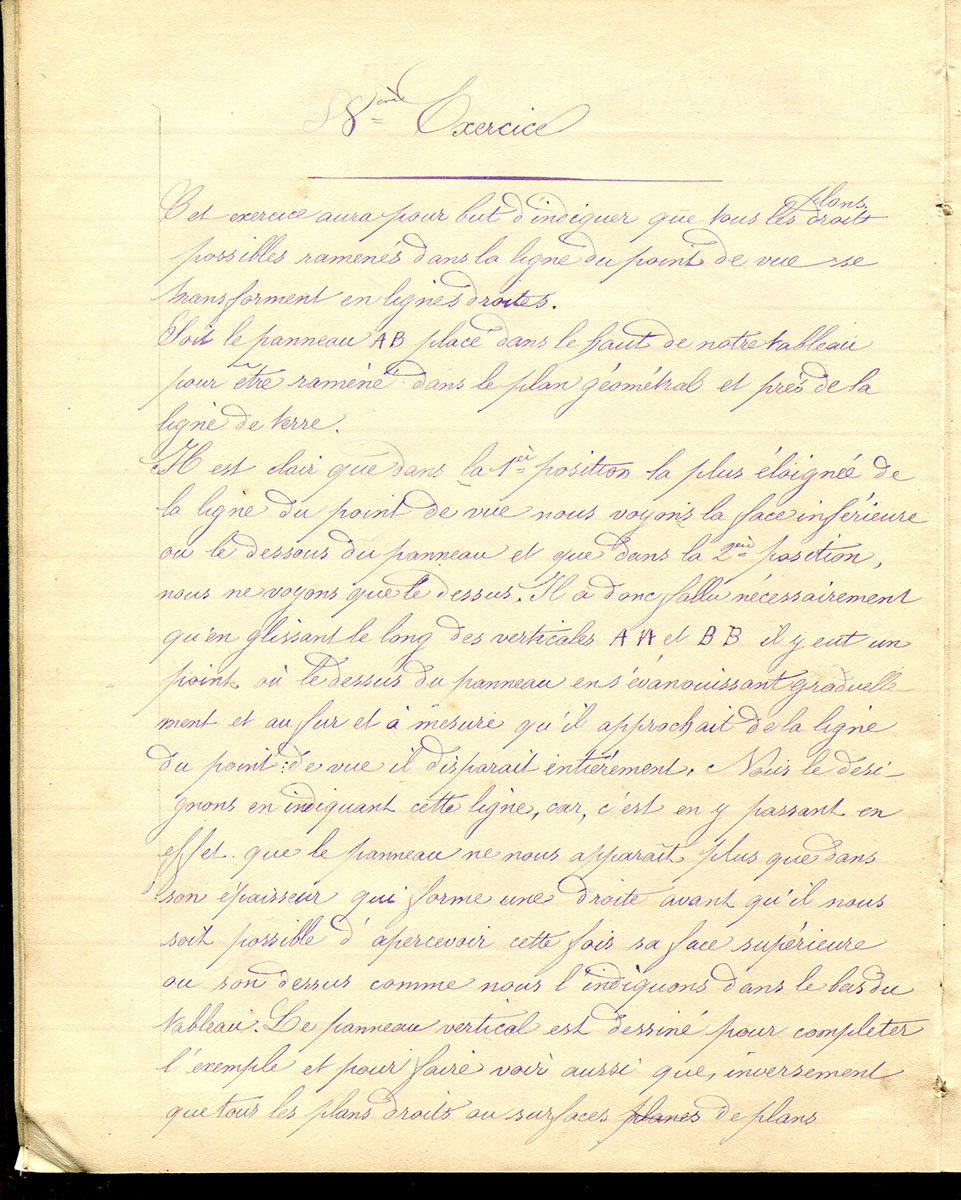 8ème Exercice
Cet exercice aura pour but d'indiquer que tous les plans droits
possibles ramenés dans la ligne du point de vue se
transforment en lignes droites.
Soit le panneau AB placé dans le haut de notre tableau
pour être ramené dans le plan géométral et près de la
ligne de terre.
Il est clair que dans la 1ère position la plus éloignée de
la ligne du point de vue nous voyons la face inférieure
ou le dessous du panneau et que dans la 2ème position,
nous ne voyons que le dessus. Il a donc fallu nécessairement
qu'en glissant le long des verticales AA et BB il y eut un
point où le dessus du panneau en s'évanouissant graduelle-
ment et au fur et à mesure qu'il approchait de la ligne
du point de vue il disparait entièrement. Nous le dési-
gnons en indiquant cette ligne, car, c'est en y passant en
effet que le panneau ne nous apparaît plus que dans
son épaisseur qui forme une droite avant qu'il nous
soit possible d'apercevoir cette fois sa face supérieure
ou son dessus comme nous l'indiquons dans le bas du
tableau. Le panneau vertical est dessiné pour completer
l'exemple et pour faire voir aussi que, inversement
que tous les plans droits au surfaces planes de plans